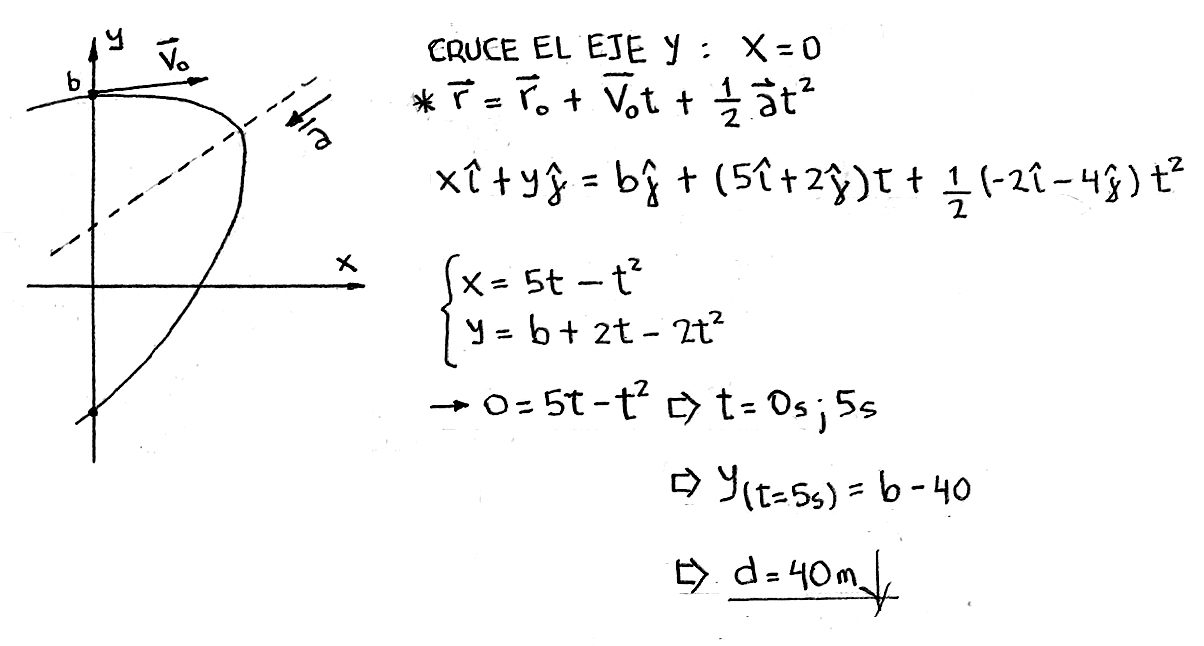 y
V⃗₀
b
a⃗
x
CRUCE EL EJE y : X = 0
* r⃗ = r⃗₀ + V⃗₀t + 1/2 a⃗t²
xî + yĵ = bĵ + (5î+2ĵ)t + 1/2 (-2î-4ĵ) t²
{x = 5t - t²
y = b + 2t - 2t²
→ 0 = 5t - t² ⇨ t = 0s ; 5s
⇨ y(t=5s) = b - 40
⇨ d = 40m